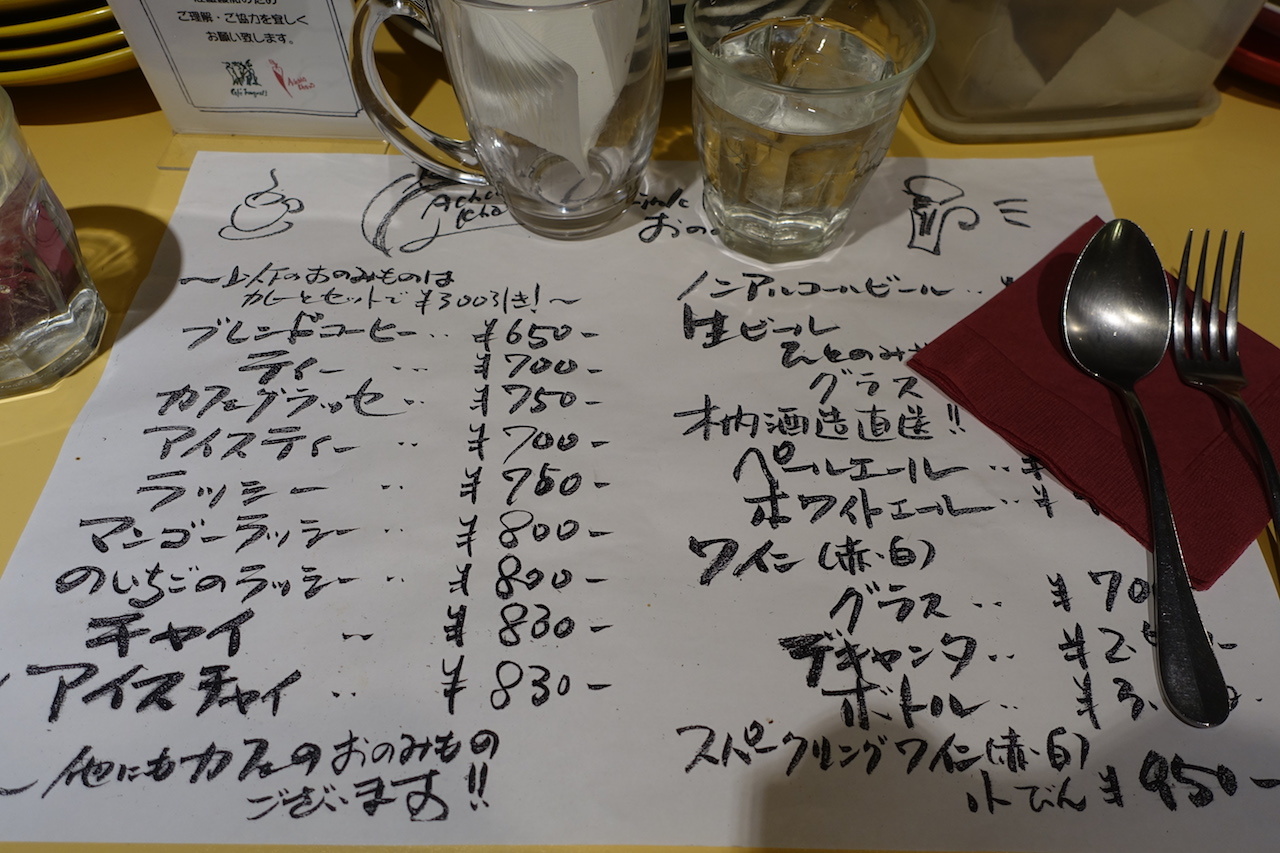 ご理解・ご協力を宜しく
お願い致します。
おの
〜以下のおのみものは
カレーとセットで¥300引き!〜
ブレンドコーヒー‥ ¥650-
ティー … ¥700-
カフェグラッセ‥ ¥750-
アイスティー ‥ ¥700-
ラッシー ‥ ¥750-
マンゴーラッシー ‥ ¥800-
のいちごのラッシー ‥ ¥800-
チャイ ‥ ¥830-
アイスチャイ ‥ ¥830-
〜他にもカフェのおのみもの
ございます!!
ノンアルコールビール‥
生ビール
ひとのみ
グラス
木内酒造直送!!
ペールエール ‥ ¥
ホワイトエール‥ ¥
ワイン(赤・白)
グラス ‥ ¥70
デキャンタ‥ ¥2.
ボトル‥ ¥3.
スパークリングワイン(赤・白)
小びん ¥950-